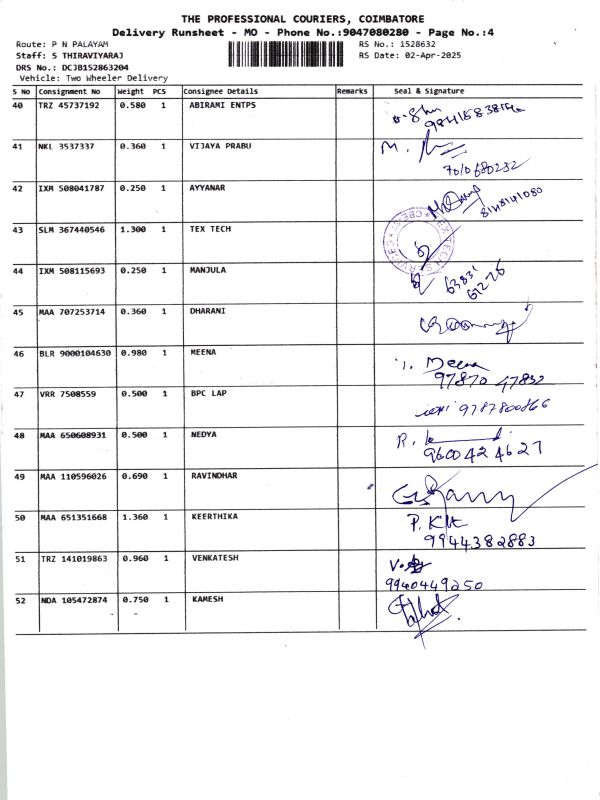 THE PROFESSIONAL COURIERS, COIMBATORE
Delivery Runsheet - MO - Phone No.:9047080280 - Page No.:4
Route: P N PALAYAM
RS No.: 1528632
Staff: S THIRAVIYARAJ
RS Date: 02-Apr-2025
DRS No.: DCJB152863204
Vehicle: Two Wheeler Delivery
S No Consignment No Weight PCS Consignee Details Remarks Seal & Signature
40 TRZ 45737192 0.580 1 ABIRAMI ENTPS
41 NKL 3537337 0.360 1 VIJAYA PRABU M.
7010680232
42 IXM 508041787 0.250 1 AYYANAR 8148141080
43 SLM 367440546 1.300 1 TEX TECH
TEX TECH SERVICES CBE
44 IXM 508115693 0.250 1 MANJULA 63831
61276
45 MAA 707253714 0.360 1 DHARANI
46 BLR 9000104630 0.980 1 MEENA Meena
97870 47832
47 VRR 7508559 0.500 1 BPC LAP 9787800866
48 MAA 650608931 0.500 1 NEDYA R.
9600424627
49 MAA 110596026 0.690 1 RAVINDHAR
50 MAA 651351668 1.360 1 KEERTHIKA P.
9944382883
51 TRZ 141019863 0.960 1 VENKATESH V.
9940449250
52 NDA 105472874 0.750 1 KAMESH